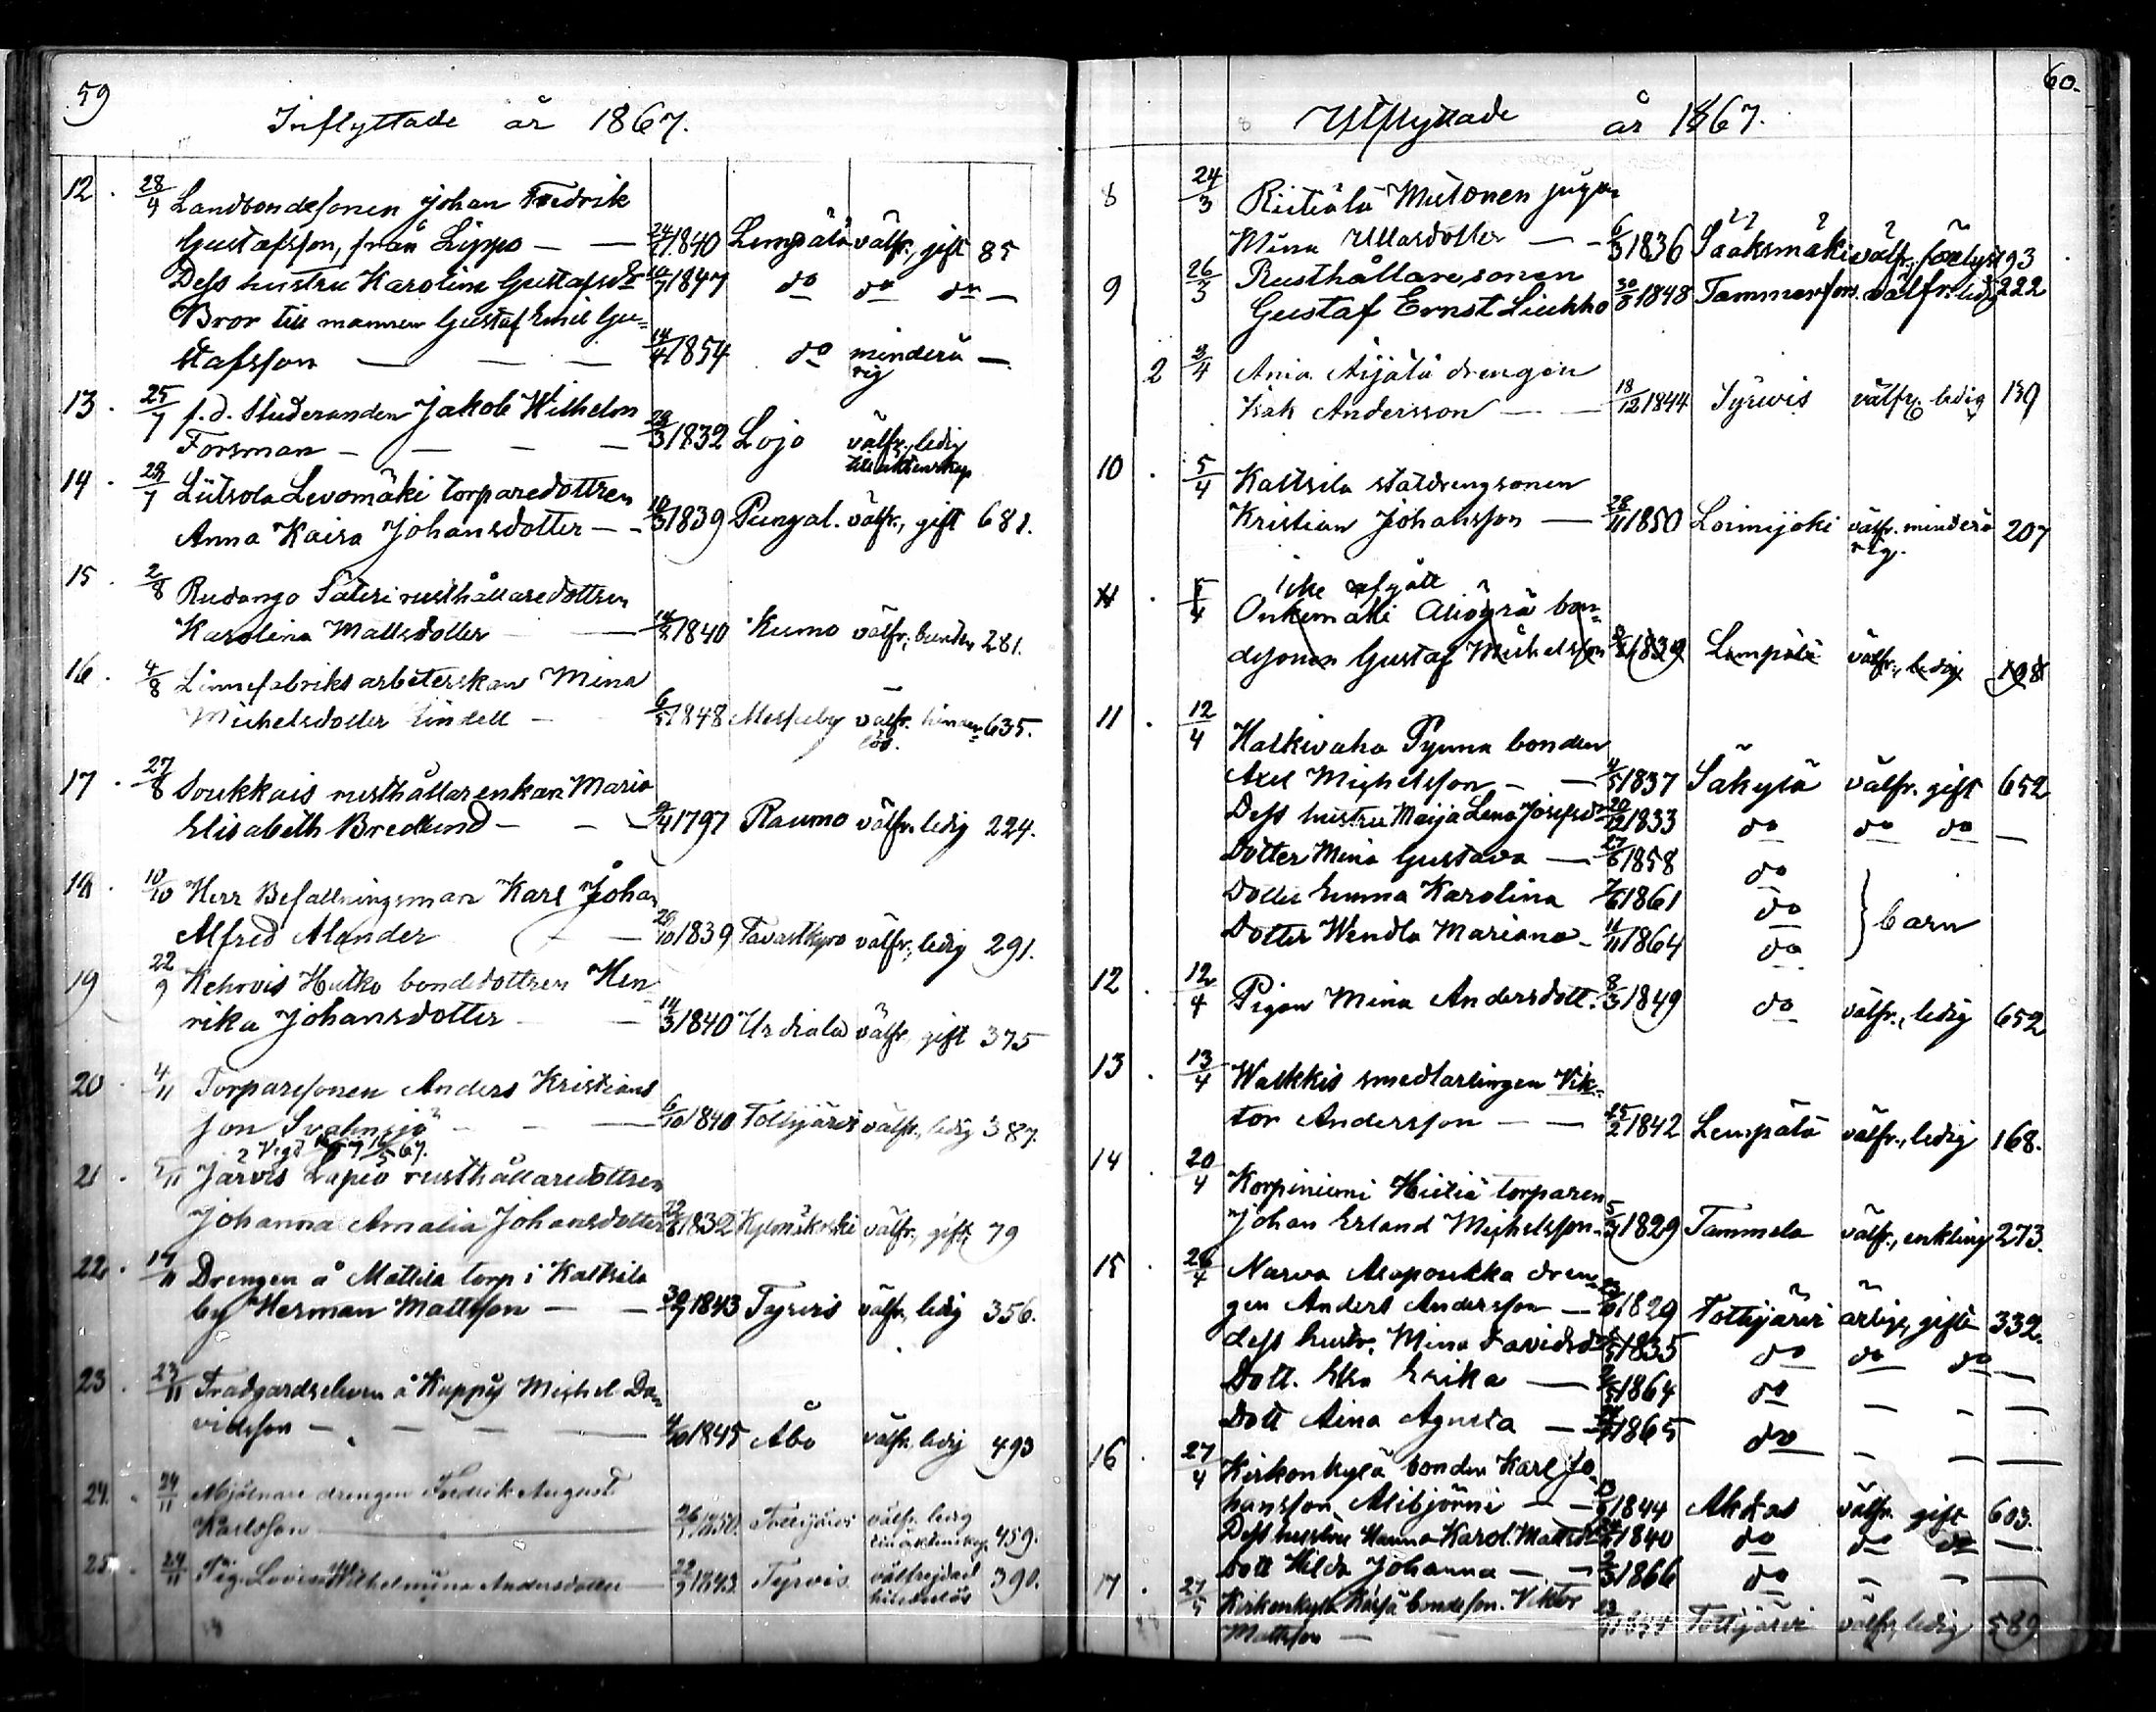 59
Inflyttade år 1867.
12. 28/4 Landbondesonen Johan Fredrik
Gustafsson, från Lippo — — 1840 Lempälä välfr., gift 85
Dess hustru Karolina Gustafsdr 1847 do do do —
Bror till mannen Gustaf Emil Gu-
stafsson — — — 14/4 1854 do minderå —
rig
13. 25/7 f.d. Studeranden Jakob Wilhelm
Forsman — — — — 1832 Lojo välfr., ledig
till äktenskap
14. 28/7 Liitsola Levomäki torparedottren
Anna Kaisa Johansdotter — - 1839 Pungal. välfr., gift 681.
15. 2/8 Säteri rusthållaredottren
Karolina Mattsdotter — 1840 Kumo välfr., bunden 281.
16. 4/8 Linnefabriksarbeterskan Mina
Michelsdotter Lindell - 1848 välfr. hinder 635.
lös.
17. 27/8 Soukkais rusthållarenkan Maria
Elisabeth Bredlund — — — 1797 Raumo välfr. ledig 224.
18. 10/10 Herr Befallningsman Karl Johan
Alfred Alander — 1839 Tavastkyro välfr., ledig 291.
19 22/9 Kehrois Hutko bondedottren Hen-
rika Johansdotter — 14/3 1840 Urdiala välfr. gift 375
20. 4/11 Torparesonen Anders Kristians
son Svahnsjö — 6/10 1840 Tottijärvi välfr., ledig 387.
21. 5/11 Järvis Lapio rusthållaredottren
Johanna Amalia Johansdotter 1832 Kylmäkoski välfr., gift, 79
22. Drengen å Mattila torp i Kaltsila
by Herman Mattsson — — 1843 Tyrvis välfr., ledig 356.
23. 23/11 Trädgårdseleven å Kuppis Michel Da-
vidsson — — — — 4/10 1845 Åbo välfr. ledig 493
24. 24/11 Mjölnare drengen Fredrik August
Karlsson — 1850. Tottijärvi välfr. ledig
till äktenskap. 459.
25. 24/11 Pig. Lovisa Wilhelmina Andersdotter 1843. Tyrvis välfrejdad 390.
hinderslös
60.
Utflyttade år 1867.
8 24/3 Riitiälä Mutonen pigan
Mina Ullasdotter — — 6/3 1836 Sääksmäki välfr., förlyst 193
9 26/3 Rusthållaresonen
Gustaf Ernst Liukko 1848 Tammerfors. välfr. ledig 222
2 3/4 Äijälä drengen
Isak Andersson — — 18/12 1844 Tyrwis välfr. ledig 139
10. 5/4 Kaltsila statdrengsonen
Kristian Johansson — 28/11 1850 Loimijoki välfr. minderå 207
rig.
icke afgått
11. 5/4 Onkemäki bon-
desonen Gustaf Michelsson 1839 Lempälä välfr., ledig 198
11. 12/4 Halkivaha Pynnä bonden
Axel Michelsson — — 4/5 1837 Säkylä välfr. gift 652
Dess hustru Maija Lena Josefsd. 20/12 1833 do do do —
Dotter Mina Gustava — 27/6 1858 do
Dotter Emma Karolina 1861 do
Dotter Wendla Mariana - 11/11 1864 do } barn
12. 12/4 Pigan Mina Andersdott. 8/3 1849 do välfr., ledig 652
13. 13/4 Walkkis smedlärlingen Vik-
tor Andersson — — 25/2 1842 Lempälä välfr., ledig 168.
14. 20/4 Korpiniemi Hietiä torparen
Johan Erland Michelsson. 5/3 1829 Tammela välfr., enkling 273.
15. 26/4 Narva Alapoukka dren-
gen Anders Andersson — 1829 Tottijärvi ärlige, gift 332.
dess hustr. Mina Davidsd. 1835 do do do —
Dott. Eva Erika — 1864 do — — —
Dott Aina Agusta — 1865 do — — —
16. 27/4 Kirkonkylä bonden Karl Jo
hansson Alibjörni — — 1844 Akdas välfr. gift 603.
Dess hustru Hanna Karol. Mattsd. 1840 do do do —
Dott Hilda Johanna — — 1866 do — — —
17. Kirkonkylä bondeson. Viktor
Mattsson — — Tottijärvi välfr., ledig 589